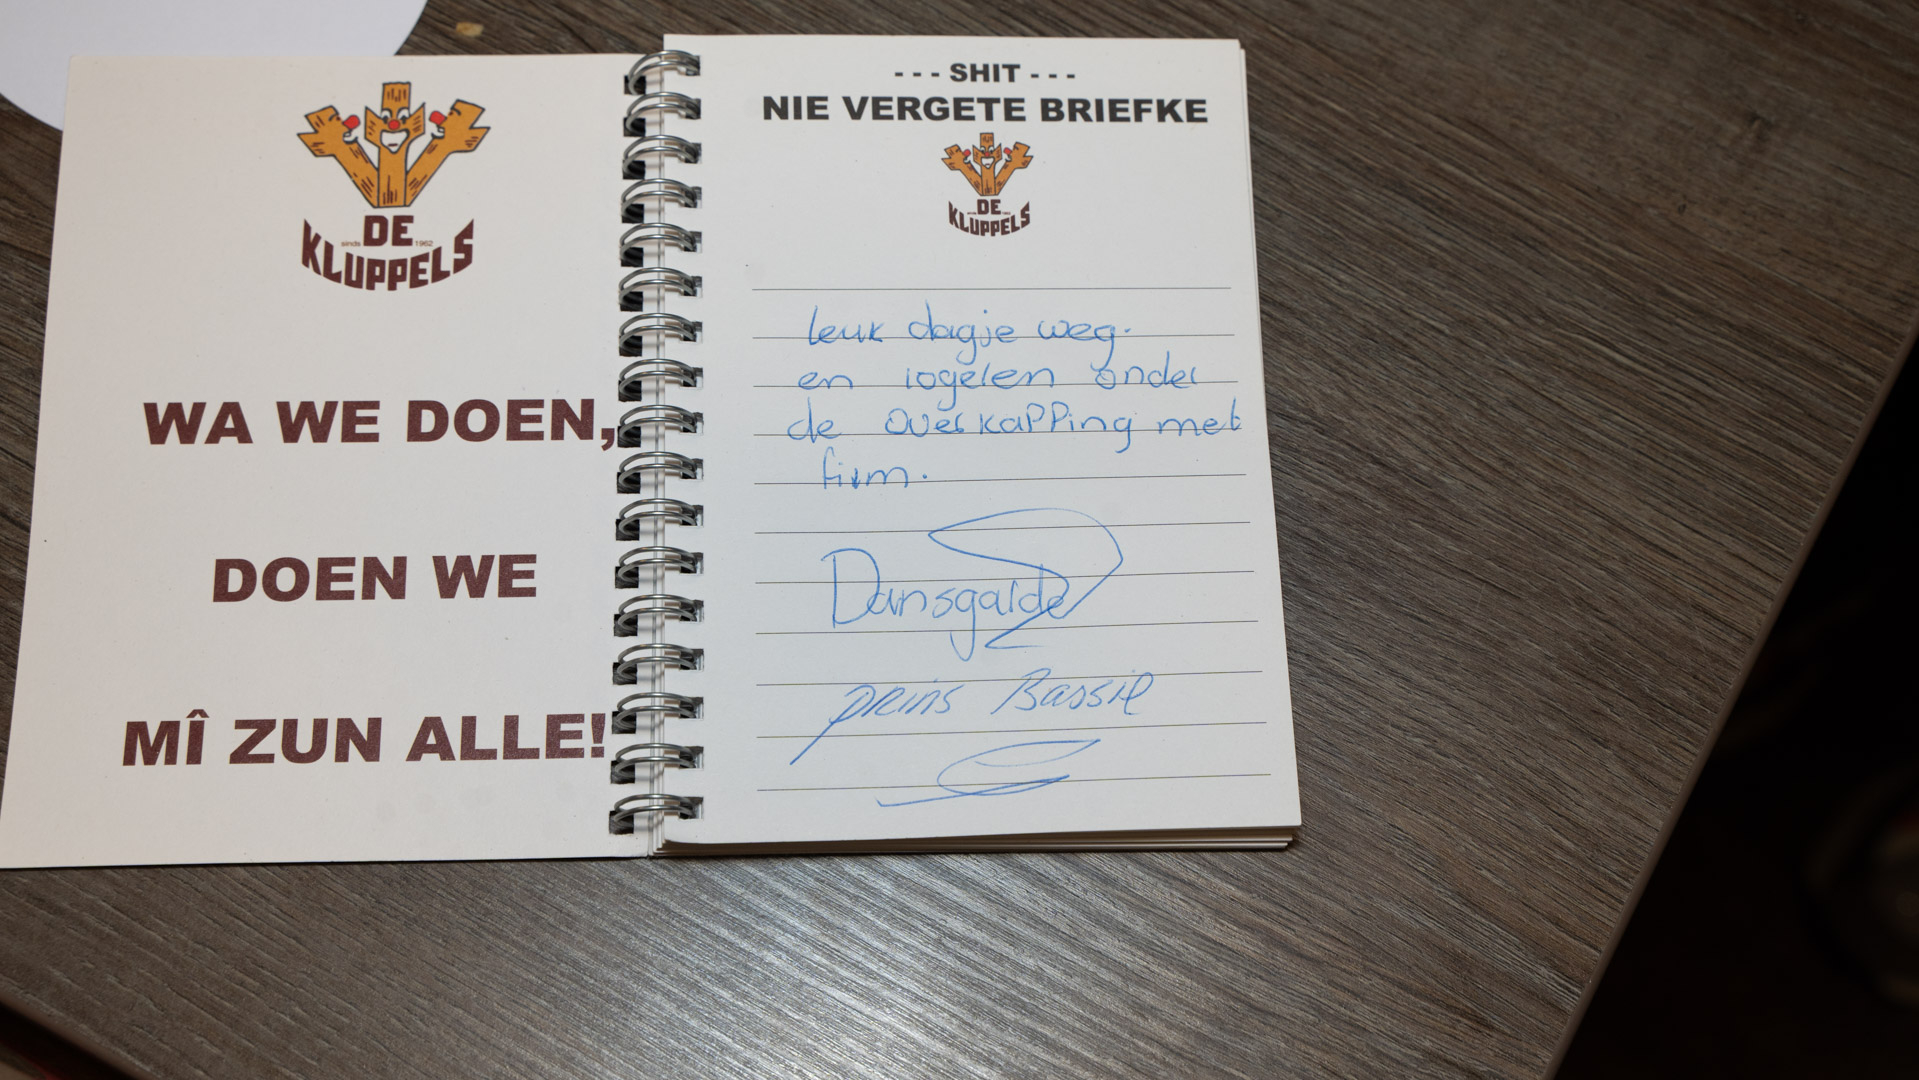 DE
sinds 1962
KLUPPELS
WA WE DOEN,
DOEN WE
MÎ ZUN ALLE!
- - - SHIT - - -
NIE VERGETE BRIEFKE
DE
KLUPPELS
leuk dagje weg.
en logelen onder
de overkapping met
firm.
Dansgarde
prins Bassie